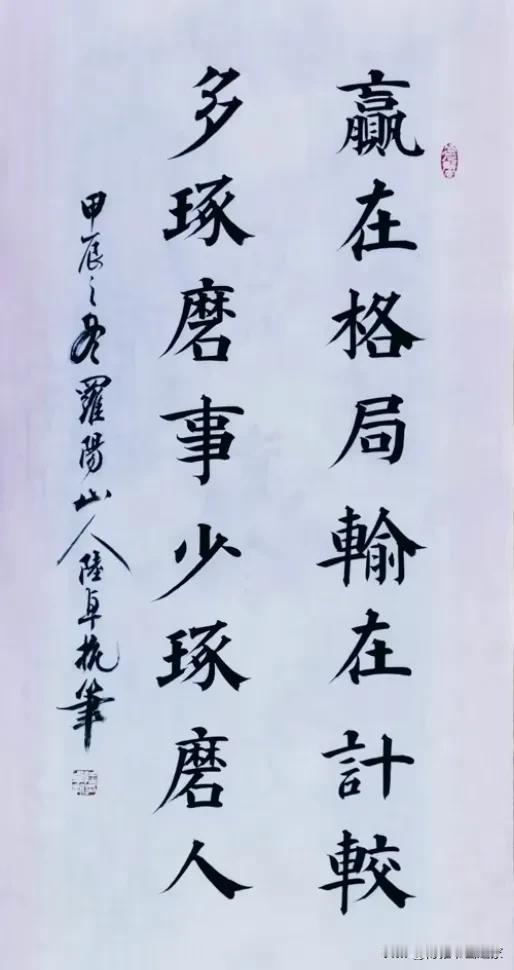 贏在格局輸在計較
多琢磨事少琢磨人
甲辰之冬羅陽山人陸卓抗筆